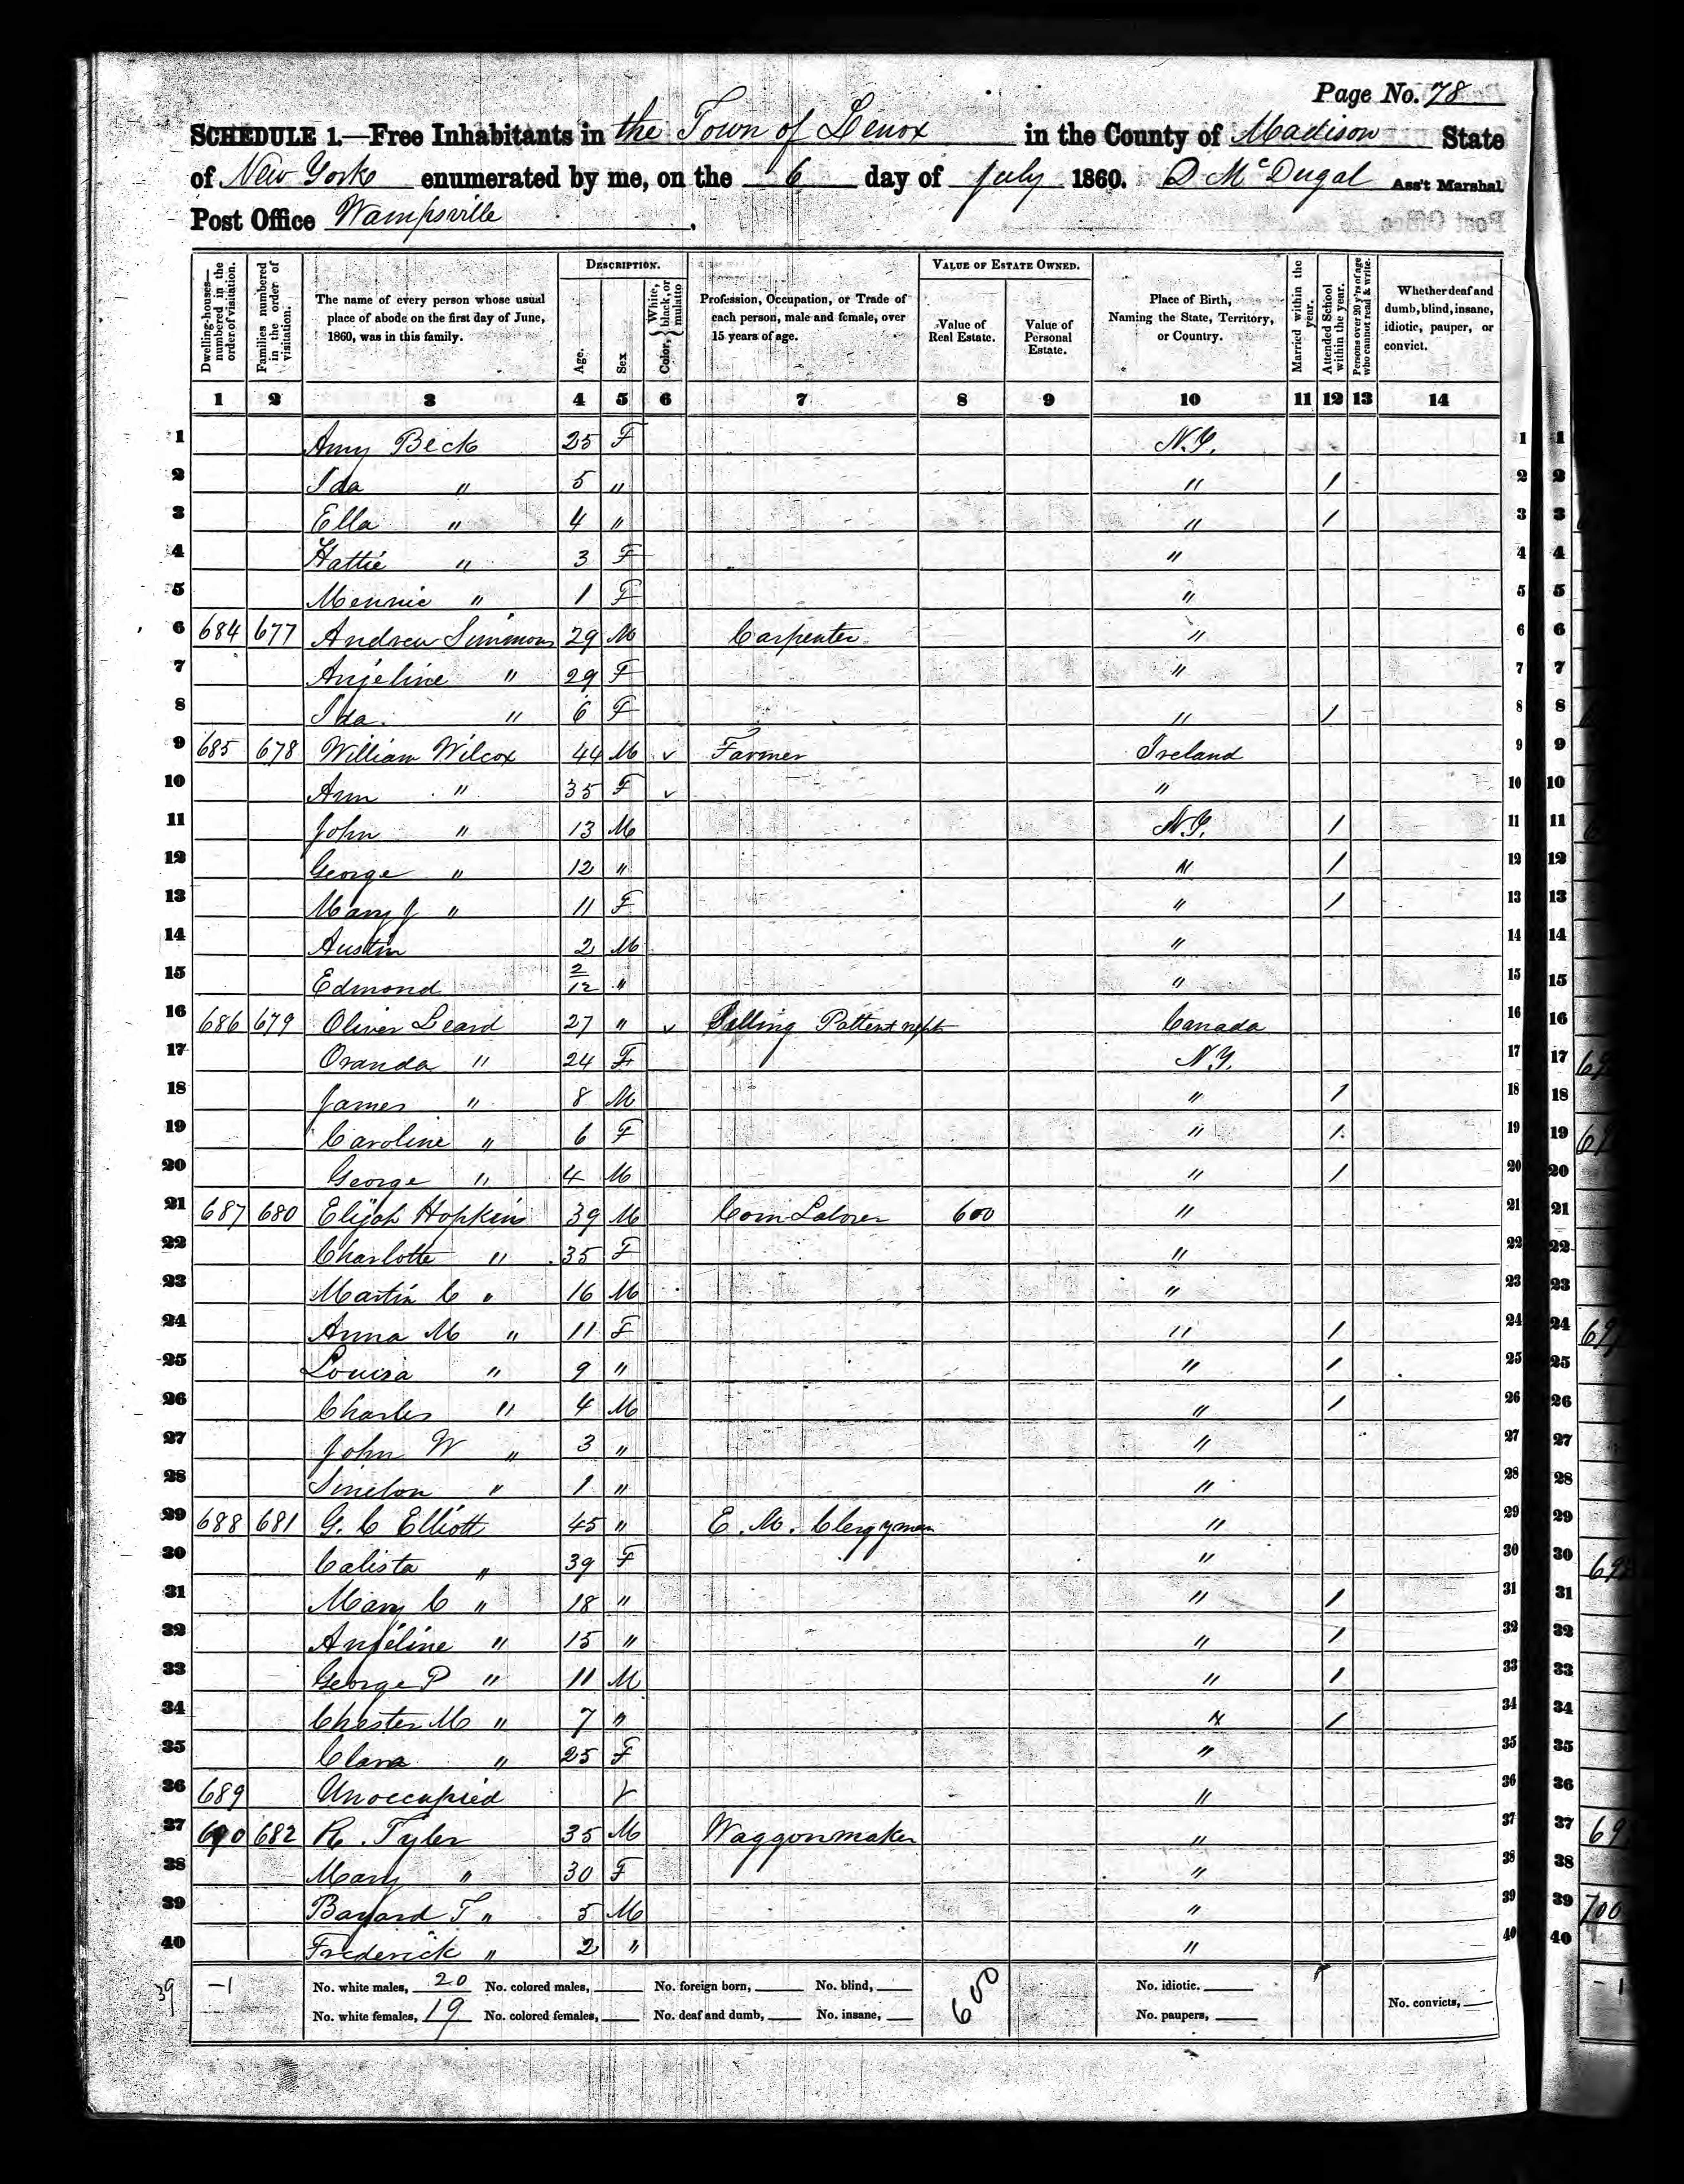 Page No. 78
SCHEDULE 1.—Free Inhabitants in the Town of Lenox in the County of Madison State
of New York enumerated by me, on the 6 day of July 1860. D McDugal Ass't Marshal
Post Office Wampsville.
DESCRIPTION. VALUE OF ESTATE OWNED.
Dwelling-houses—numbered in the order of visitation. Families numbered in the order of visitation. The name of every person whose usual place of abode on the first day of June, 1860, was in this family. Age. Sex Color, { White, black, or mulatto Profession, Occupation, or Trade of each person, male and female, over 15 years of age. Value of Real Estate. Value of Personal Estate. Place of Birth, Naming the State, Territory, or Country. Married within the year. Attended School within the year. Persons over 20 y'rs of age who cannot read & write. Whether deaf and dumb, blind, insane, idiotic, pauper, or convict.
1 2 3 4 5 6 7 8 9 10 11 12 13 14
1 Amy Beck 25 F N.Y. 1 1
2 Ida " 5 " " / 2 2
3 Ella " 4 " " / 3 3
4 Hattie " 3 F " 4 4
5 Mennie " 1 F " 5 5
6 684 677 Andrew Simmons 29 M Carpenter " 6 6
7 Anjeline " 29 F " 7 7
8 Ida " 6 F " / 8 8
9 685 678 William Wilcox 44 M v Farmer Ireland 9 9
10 Ann " 35 F v " 10 10
11 John " 13 M N.Y. / 11 11
12 George " 12 " " / 12 12
13 Mary J " 11 F " / 13 13
14 Austin 2 M " 14 14
15 Edmond 2/12 " " 15 15
16 686 679 Oliver Leard 27 " v Selling Pattent Canada 16 16
17 Oranda " 24 F N.Y. 17 17
18 James " 8 M " / 18 18
19 Caroline " 6 F " / 19 19
20 George " 4 M " / 20 20
21 687 680 Elijah Hopkins 39 M Com Laborer 600 " 21 21
22 Charlotte " 35 F " 22 22
23 Martin C " 16 M " 23 23
24 Anna M " 11 F " / 24 24
25 Louisa " 9 " " / 25 25
26 Charles " 4 M " / 26 26
27 John W " 3 " " 27 27
28 " 1 " " 28 28
29 688 681 G. C Elliott 45 " E. M. Clergyman " 29 29
30 Calista " 39 F " 30 30
31 Mary C " 18 " " / 31 31
32 Anjeline " 15 " " / 32 32
33 George P " 11 M " / 33 33
34 Chester M " 7 " " / 34 34
35 Clara " 25 F " 35 35
36 689 Unoccupied " 36 36
37 690 682 R. Tyler 35 M Waggonmaker " 37 37
38 Mary " 30 F " 38 38
39 Bayard T " 5 M " 39 39 700
40 Frederick " 2 " " 40 40
39 -1 No. white males, 20 No. colored males, No. foreign born, No. blind, 600 No. idiotic.
No. white females, 19 No. colored females, No. deaf and dumb, No. insane, No. paupers, No. convicts,